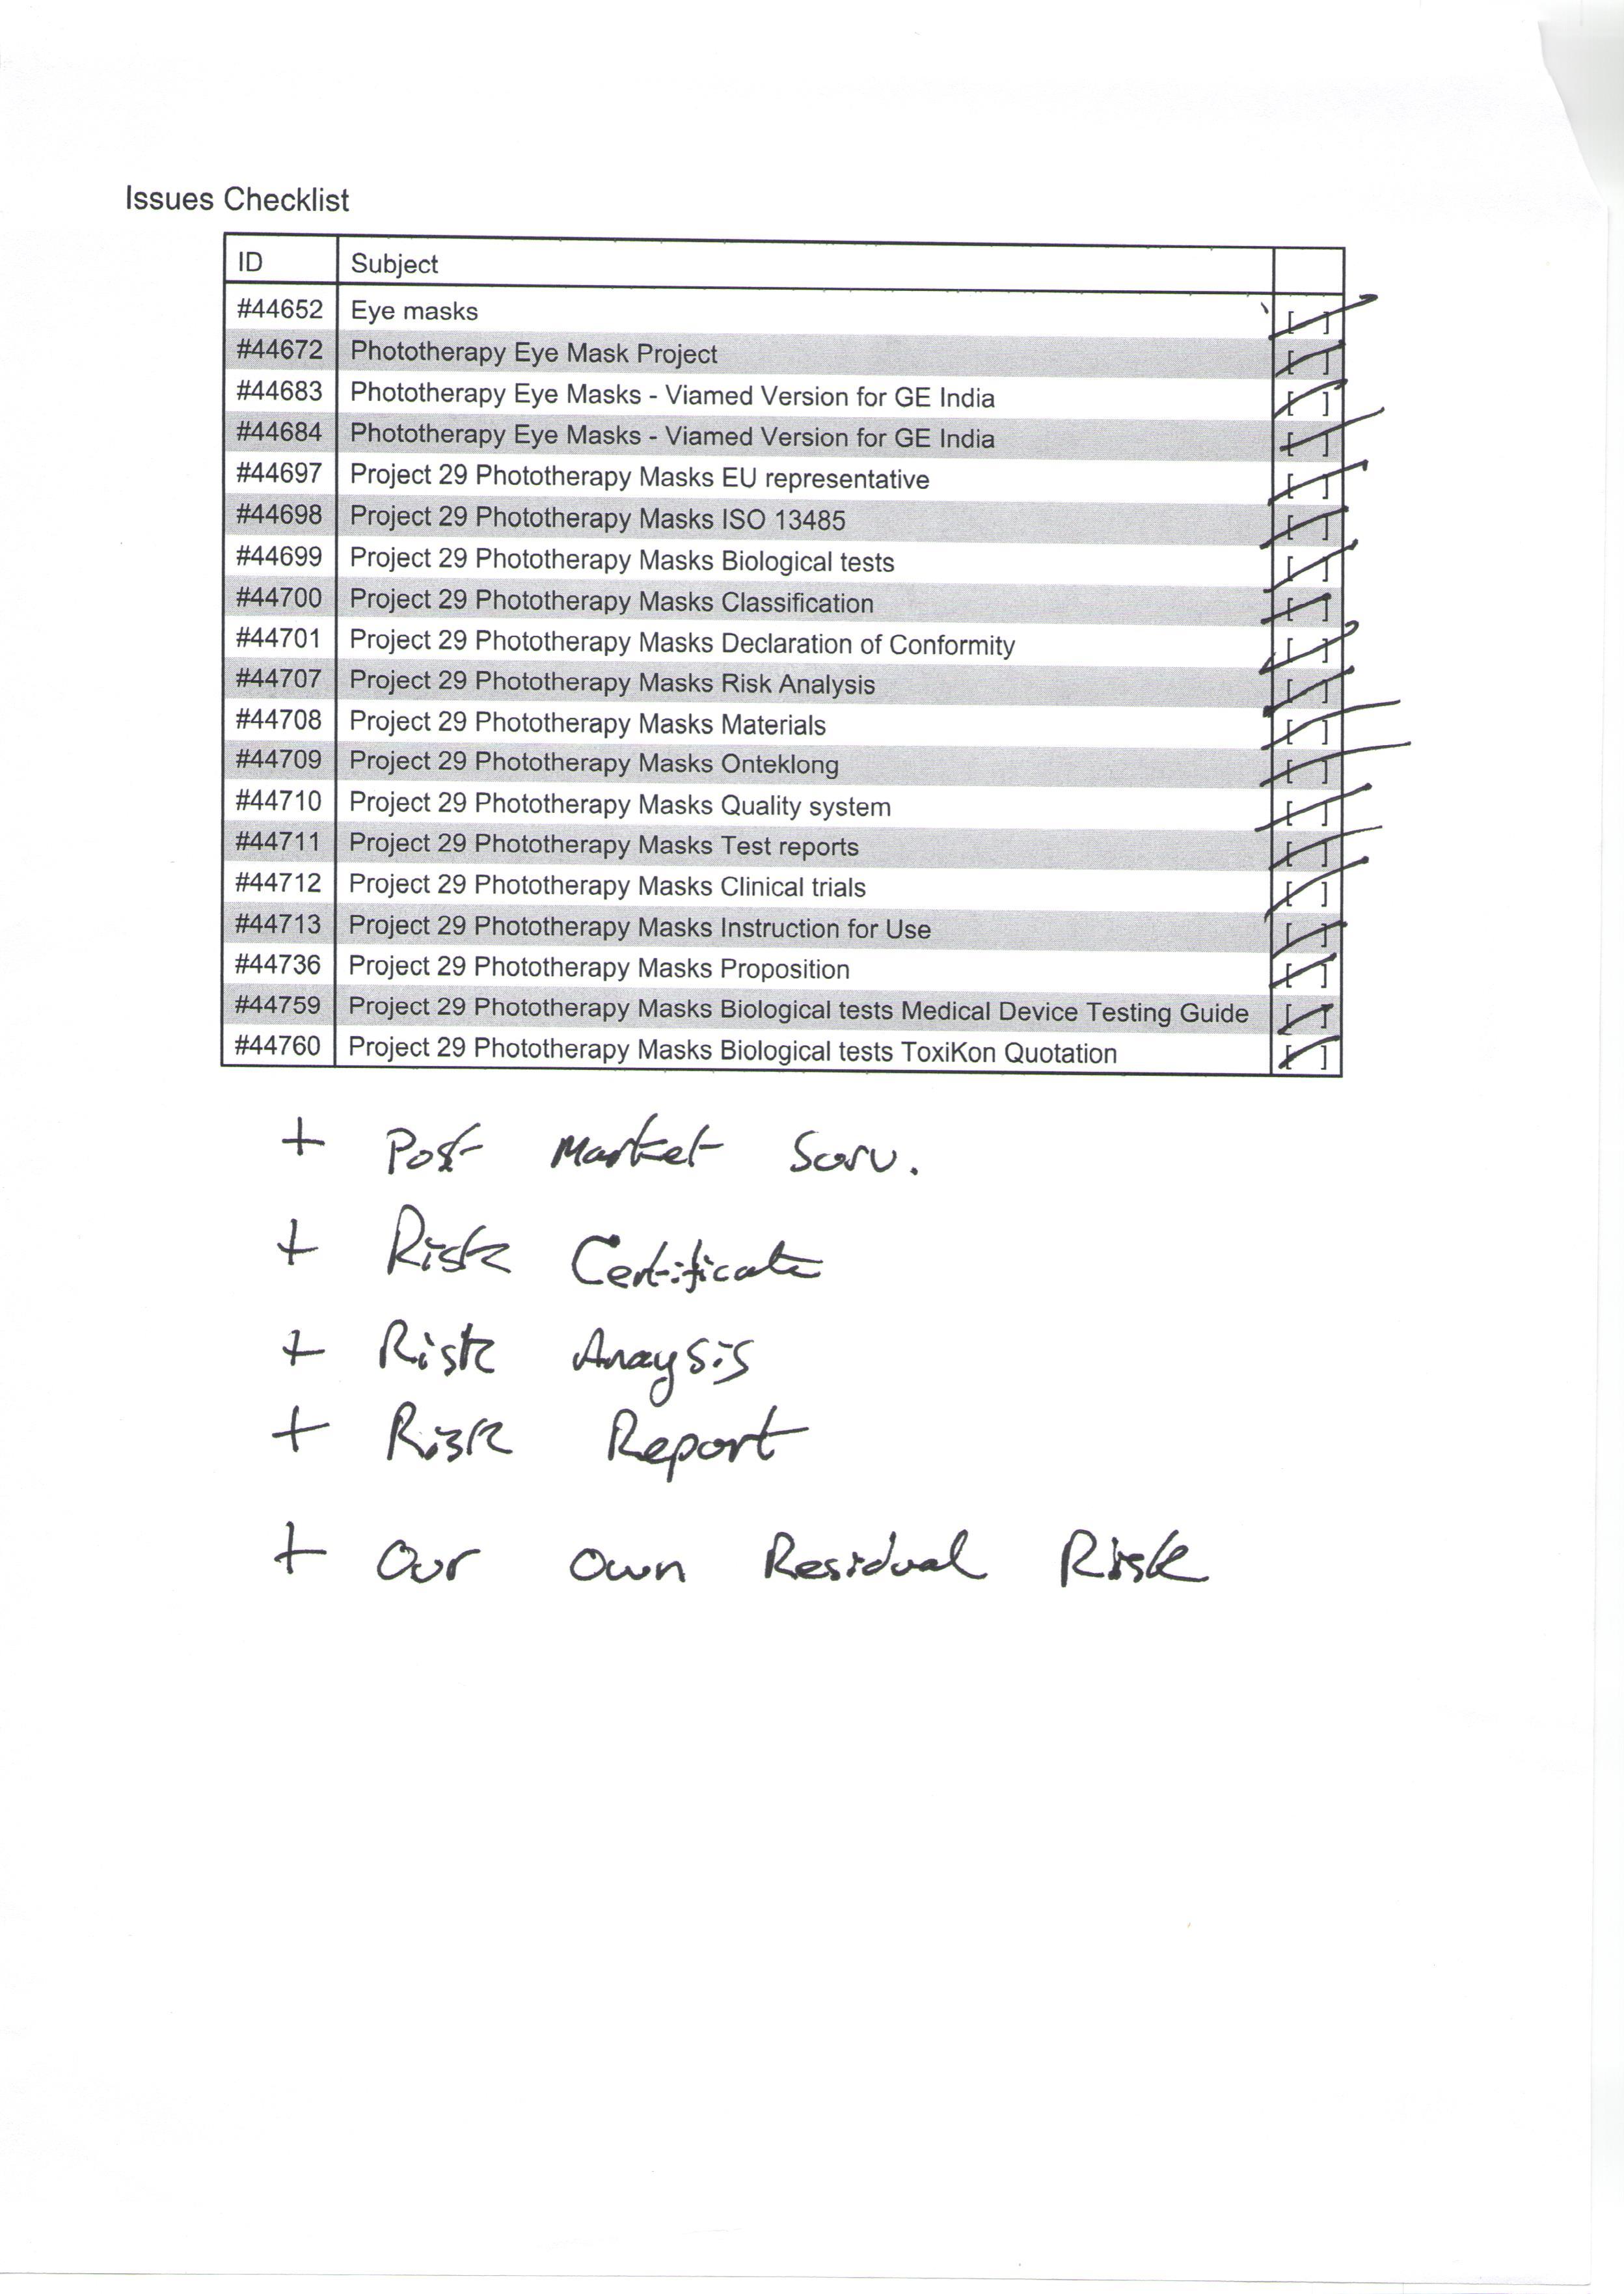 Issues Checklist
ID Subject
#44652 Eye masks [ ]
#44672 Phototherapy Eye Mask Project [ ]
#44683 Phototherapy Eye Masks - Viamed Version for GE India [ ]
#44684 Phototherapy Eye Masks - Viamed Version for GE India [ ]
#44697 Project 29 Phototherapy Masks EU representative [ ]
#44698 Project 29 Phototherapy Masks ISO 13485 [ ]
#44699 Project 29 Phototherapy Masks Biological tests [ ]
#44700 Project 29 Phototherapy Masks Classification [ ]
#44701 Project 29 Phototherapy Masks Declaration of Conformity [ ]
#44707 Project 29 Phototherapy Masks Risk Analysis [ ]
#44708 Project 29 Phototherapy Masks Materials [ ]
#44709 Project 29 Phototherapy Masks Onteklong [ ]
#44710 Project 29 Phototherapy Masks Quality system [ ]
#44711 Project 29 Phototherapy Masks Test reports [ ]
#44712 Project 29 Phototherapy Masks Clinical trials [ ]
#44713 Project 29 Phototherapy Masks Instruction for Use [ ]
#44736 Project 29 Phototherapy Masks Proposition [ ]
#44759 Project 29 Phototherapy Masks Biological tests Medical Device Testing Guide [ ]
#44760 Project 29 Phototherapy Masks Biological tests ToxiKon Quotation [ ]
+ Post Market Surv.
+ Risk Certificate
+ Risk Anaysis
+ Risk Report
+ Our Own Residual Risk